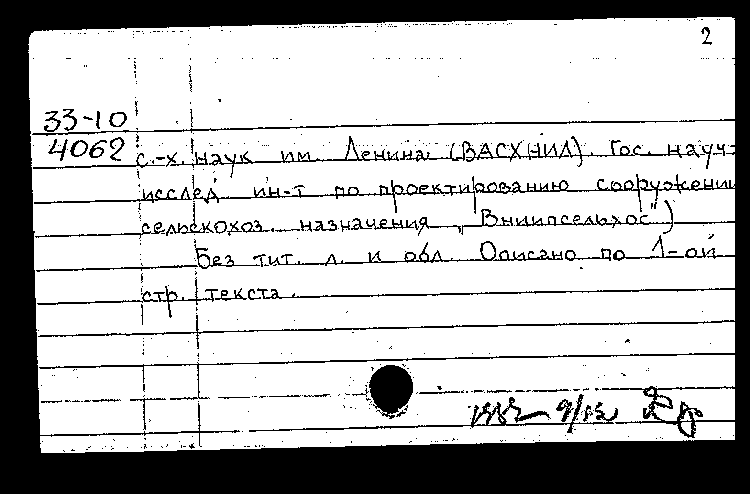 2
33-10
4062
с.-х. наук им. Ленина (ВАСХНИЛ). Гос. науч-
исслед. ин-т по проектированию сооружении
сельскохоз. назначения „Вниипсельхос")
Без тит. л. и обл. Описано по 1-ой
стр. текста.